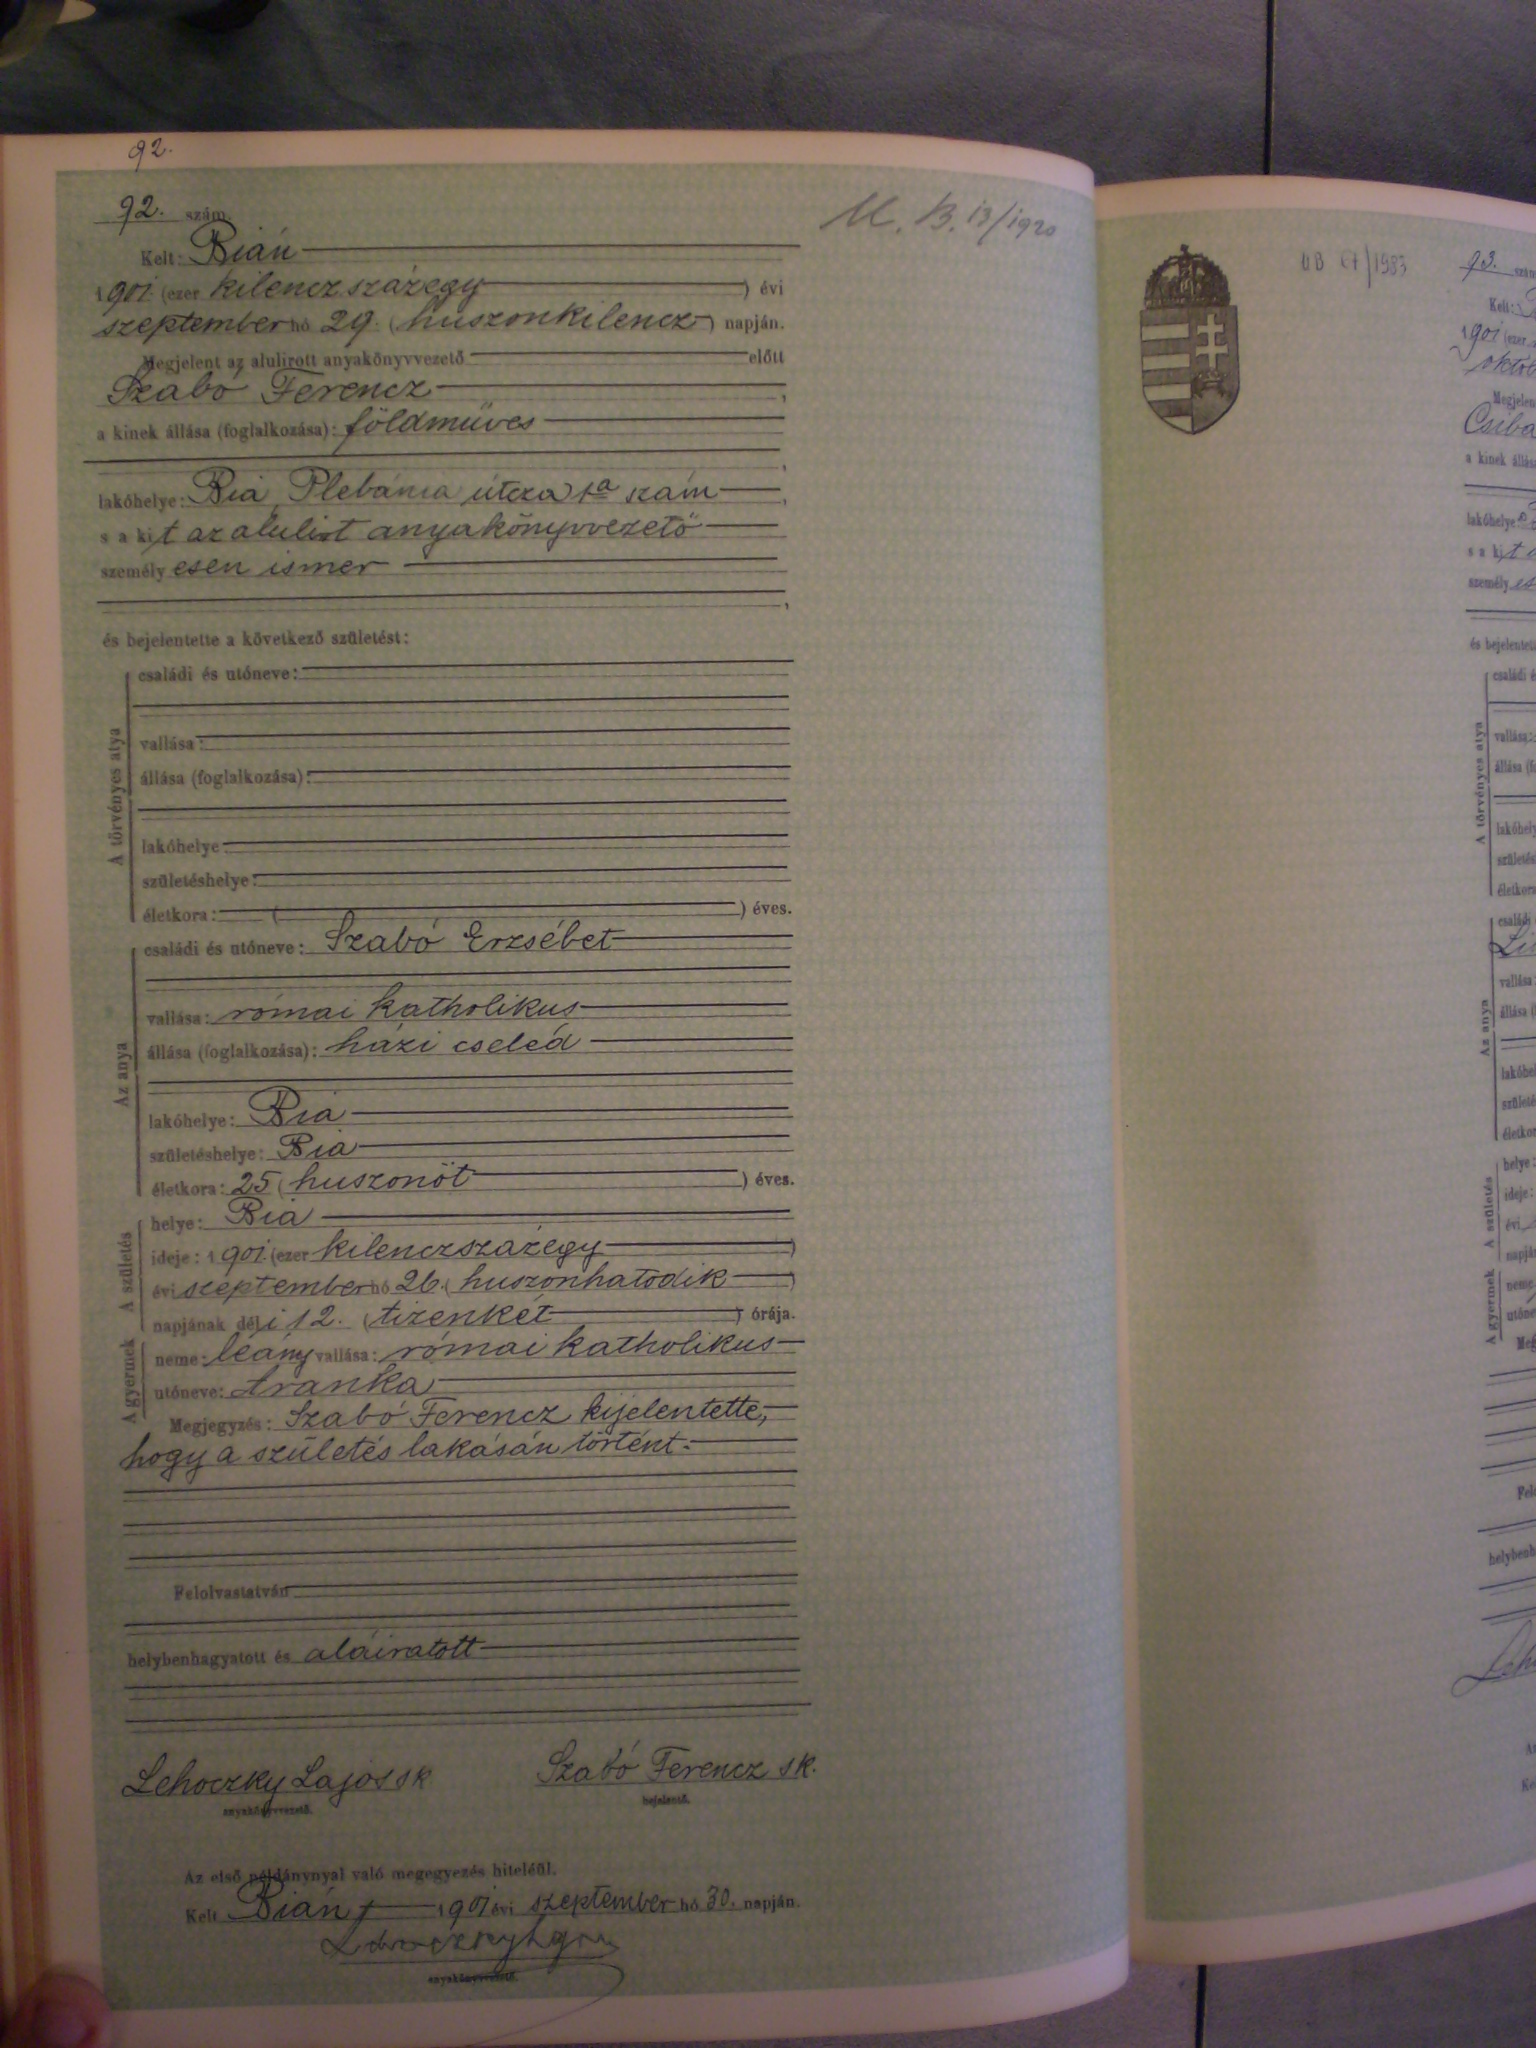 92.
92. szám.
U. B. 13/1920
Kelt: Bián
1901. (ezer kilenczszázegy) évi
szeptember hó 29. (huszonkilencz) napján.
Megjelent az alulirott anyakönyvvezető előtt
Szabó Ferencz,
a kinek állása (foglalkozása): földmüves
,
lakóhelye: Bia Plebánia útcza 1a szám,
s a kit az alulirt anyakönyvvezető
személyesen ismer
,
és bejelentette a következő születést:
A törvényes atya
családi és utóneve:
vallása:
állása (foglalkozása):
lakóhelye
születéshelye:
életkora: ( ) éves.
Az anya
családi és utóneve: Szabó Erzsébet
vallása: római katholikus
állása (foglalkozása): házi cseléd
lakóhelye: Bia
születéshelye: Bia
életkora: 25 (huszonöt) éves.
A születés
helye: Bia
ideje: 1901. (ezer kilenczszázegy)
évi szeptember hó 26. (huszonhatodik)
napjának déli 12. (tizenkét) órája.
A gyermek
neme: leány vallása: római katholikus
utóneve: Aranka
Megjegyzés: Szabó Ferencz kijelentette,
hogy a születés lakásán történt.
Felolvastatván
helybenhagyatott és aláiratott
Lehoczky Lajos sk
anyakönyvvezető.
Szabó Ferencz sk.
bejelentő.
Az első példánynyal való megegyezés hiteléül.
Kelt Bián, 1901 évi szeptember hó 30. napján.
anyakönyvvezető.
UB 67/1983
93. szám
Kelt:
1901 (ezer
októb
Megjelen
Csiba
a kinek állás
lakóhelye
s a kit a
személyes
és bejelentett
A törvényes atya
családi é
vallása:
állása (f
lakóhely
születés
életkora
Az anya
családi
vallása
állása (
lakóhel
születé
életkor
A születés
helye:
ideje:
évi
napjá
A gyermek
neme
utóne
Meg
Fel
helybenh
Leh